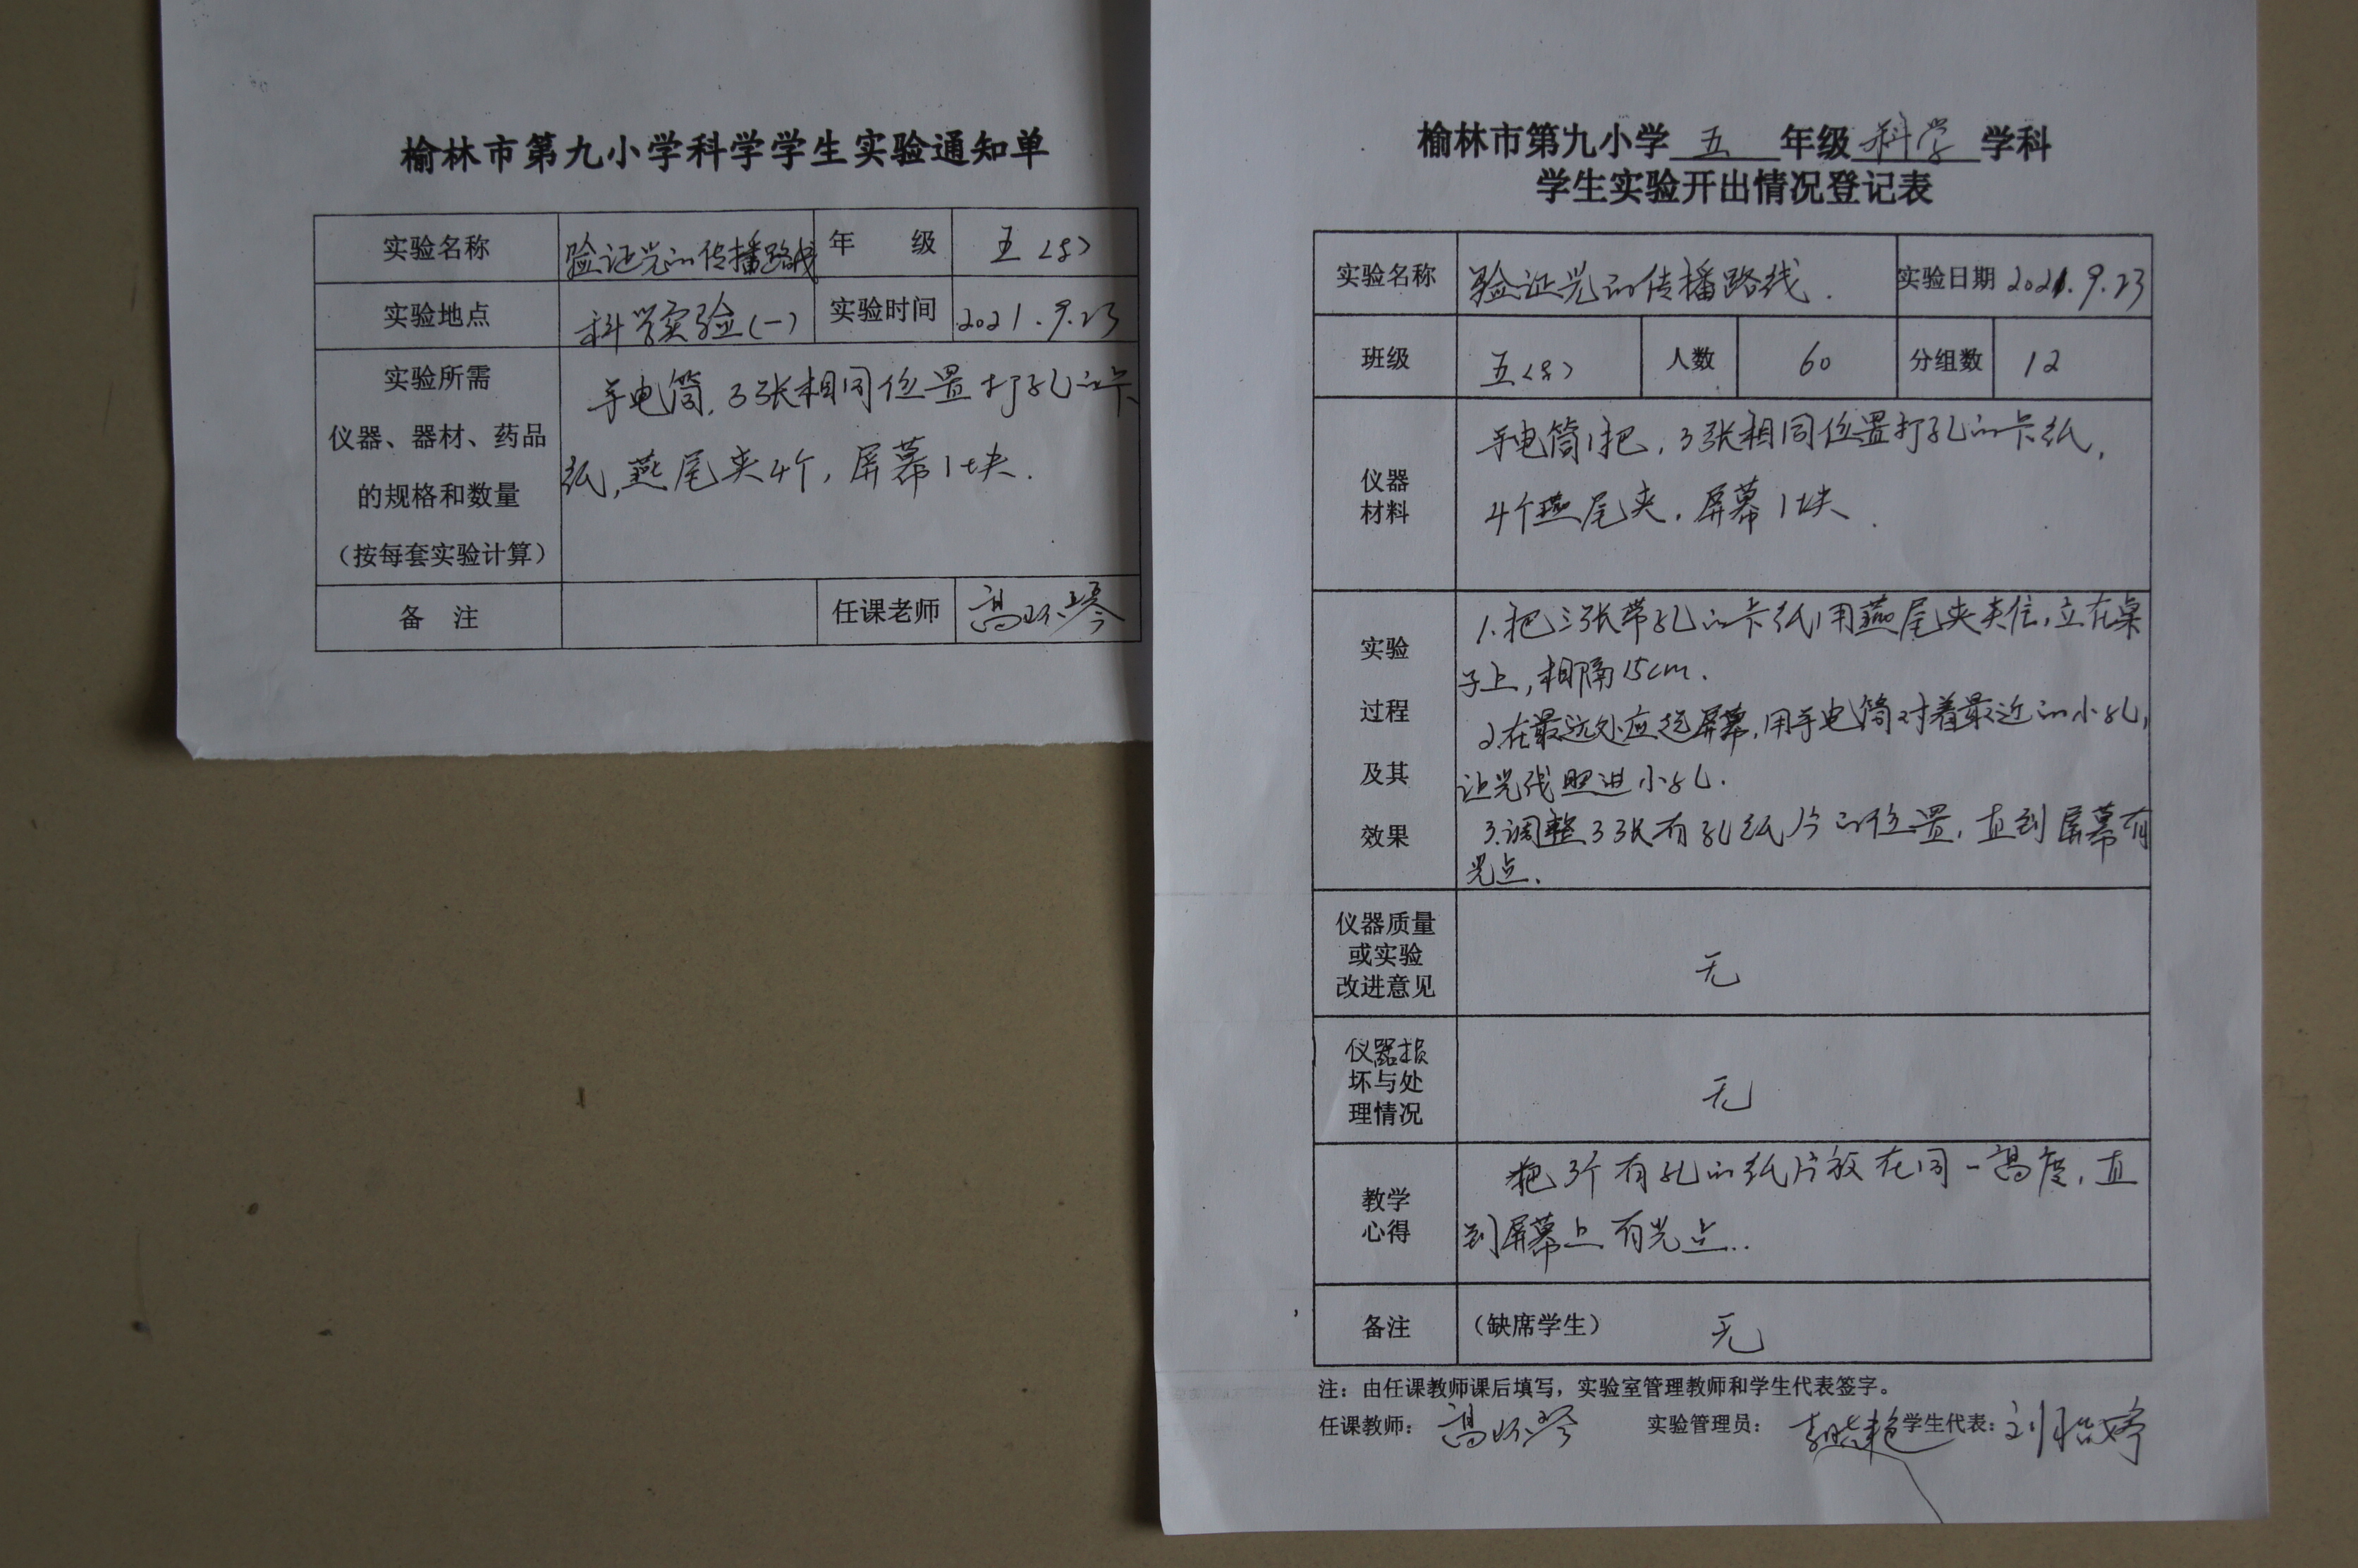 榆林市第九小学科学学生实验通知单
实验名称 验证光的传播路线 年 级 五(8)
实验地点 科学实验(一) 实验时间 2021.9.23
实验所需
仪器、器材、药品
的规格和数量
(按每套实验计算)
手电筒,3张相同位置打孔的卡
纸,燕尾夹4个,屏幕1块.
备 注 任课老师 高环琴
榆林市第九小学 五 年级 科学 学科
学生实验开出情况登记表
实验名称 验证光的传播路线. 实验日期 2021.9.23
班级 五(8) 人数 60 分组数 12
仪器
材料
手电筒1把,3张相同位置打孔的卡纸,
4个燕尾夹,屏幕1块.
实验
过程
及其
效果
1.把三张带孔的卡纸,用燕尾夹夹住,立在桌
子上,相隔15cm.
2.在最远处应起屏幕,用手电筒对着最近的小孔,
让光线照进小孔.
3.调整3张有孔纸片的位置,直到屏幕有
光点.
仪器质量
或实验
改进意见
无
仪器损
坏与处
理情况
无
教学
心得
把3个有孔的纸片放在同一高度,直
到屏幕上有光点..
备注 (缺席学生) 无
注:由任课教师课后填写,实验室管理教师和学生代表签字。
任课教师: 高环琴 实验管理员: 学生代表: 刘怡婷